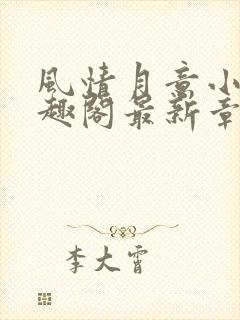 風情月意小
趣閣最新章
李大霄